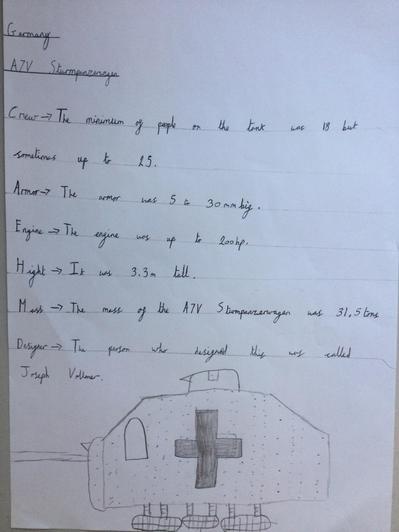 Germany
A7V Sturmpanzerwagen
Crew → The minimum of people on the tank was 18 but
sometimes up to 25.
Armor → The armor was 5 to 30mm big.
Engine → The engine was up to 200hp.
Hight → It was 3.3m tall.
Mass → The mass of the A7V Sturmpanzerwagen was 31,5 tons
Designer → The person who designed this was called
Joseph Vollmer.